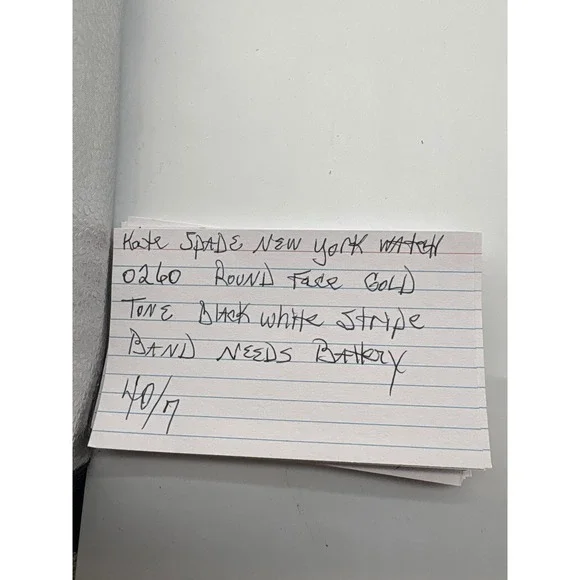 Kate SPADE NEW YORK WATCH
0260 ROUND FACE GOLD
TONE BLACK WHITE STRIPE
BAND NEEDS BATTERY
40/7